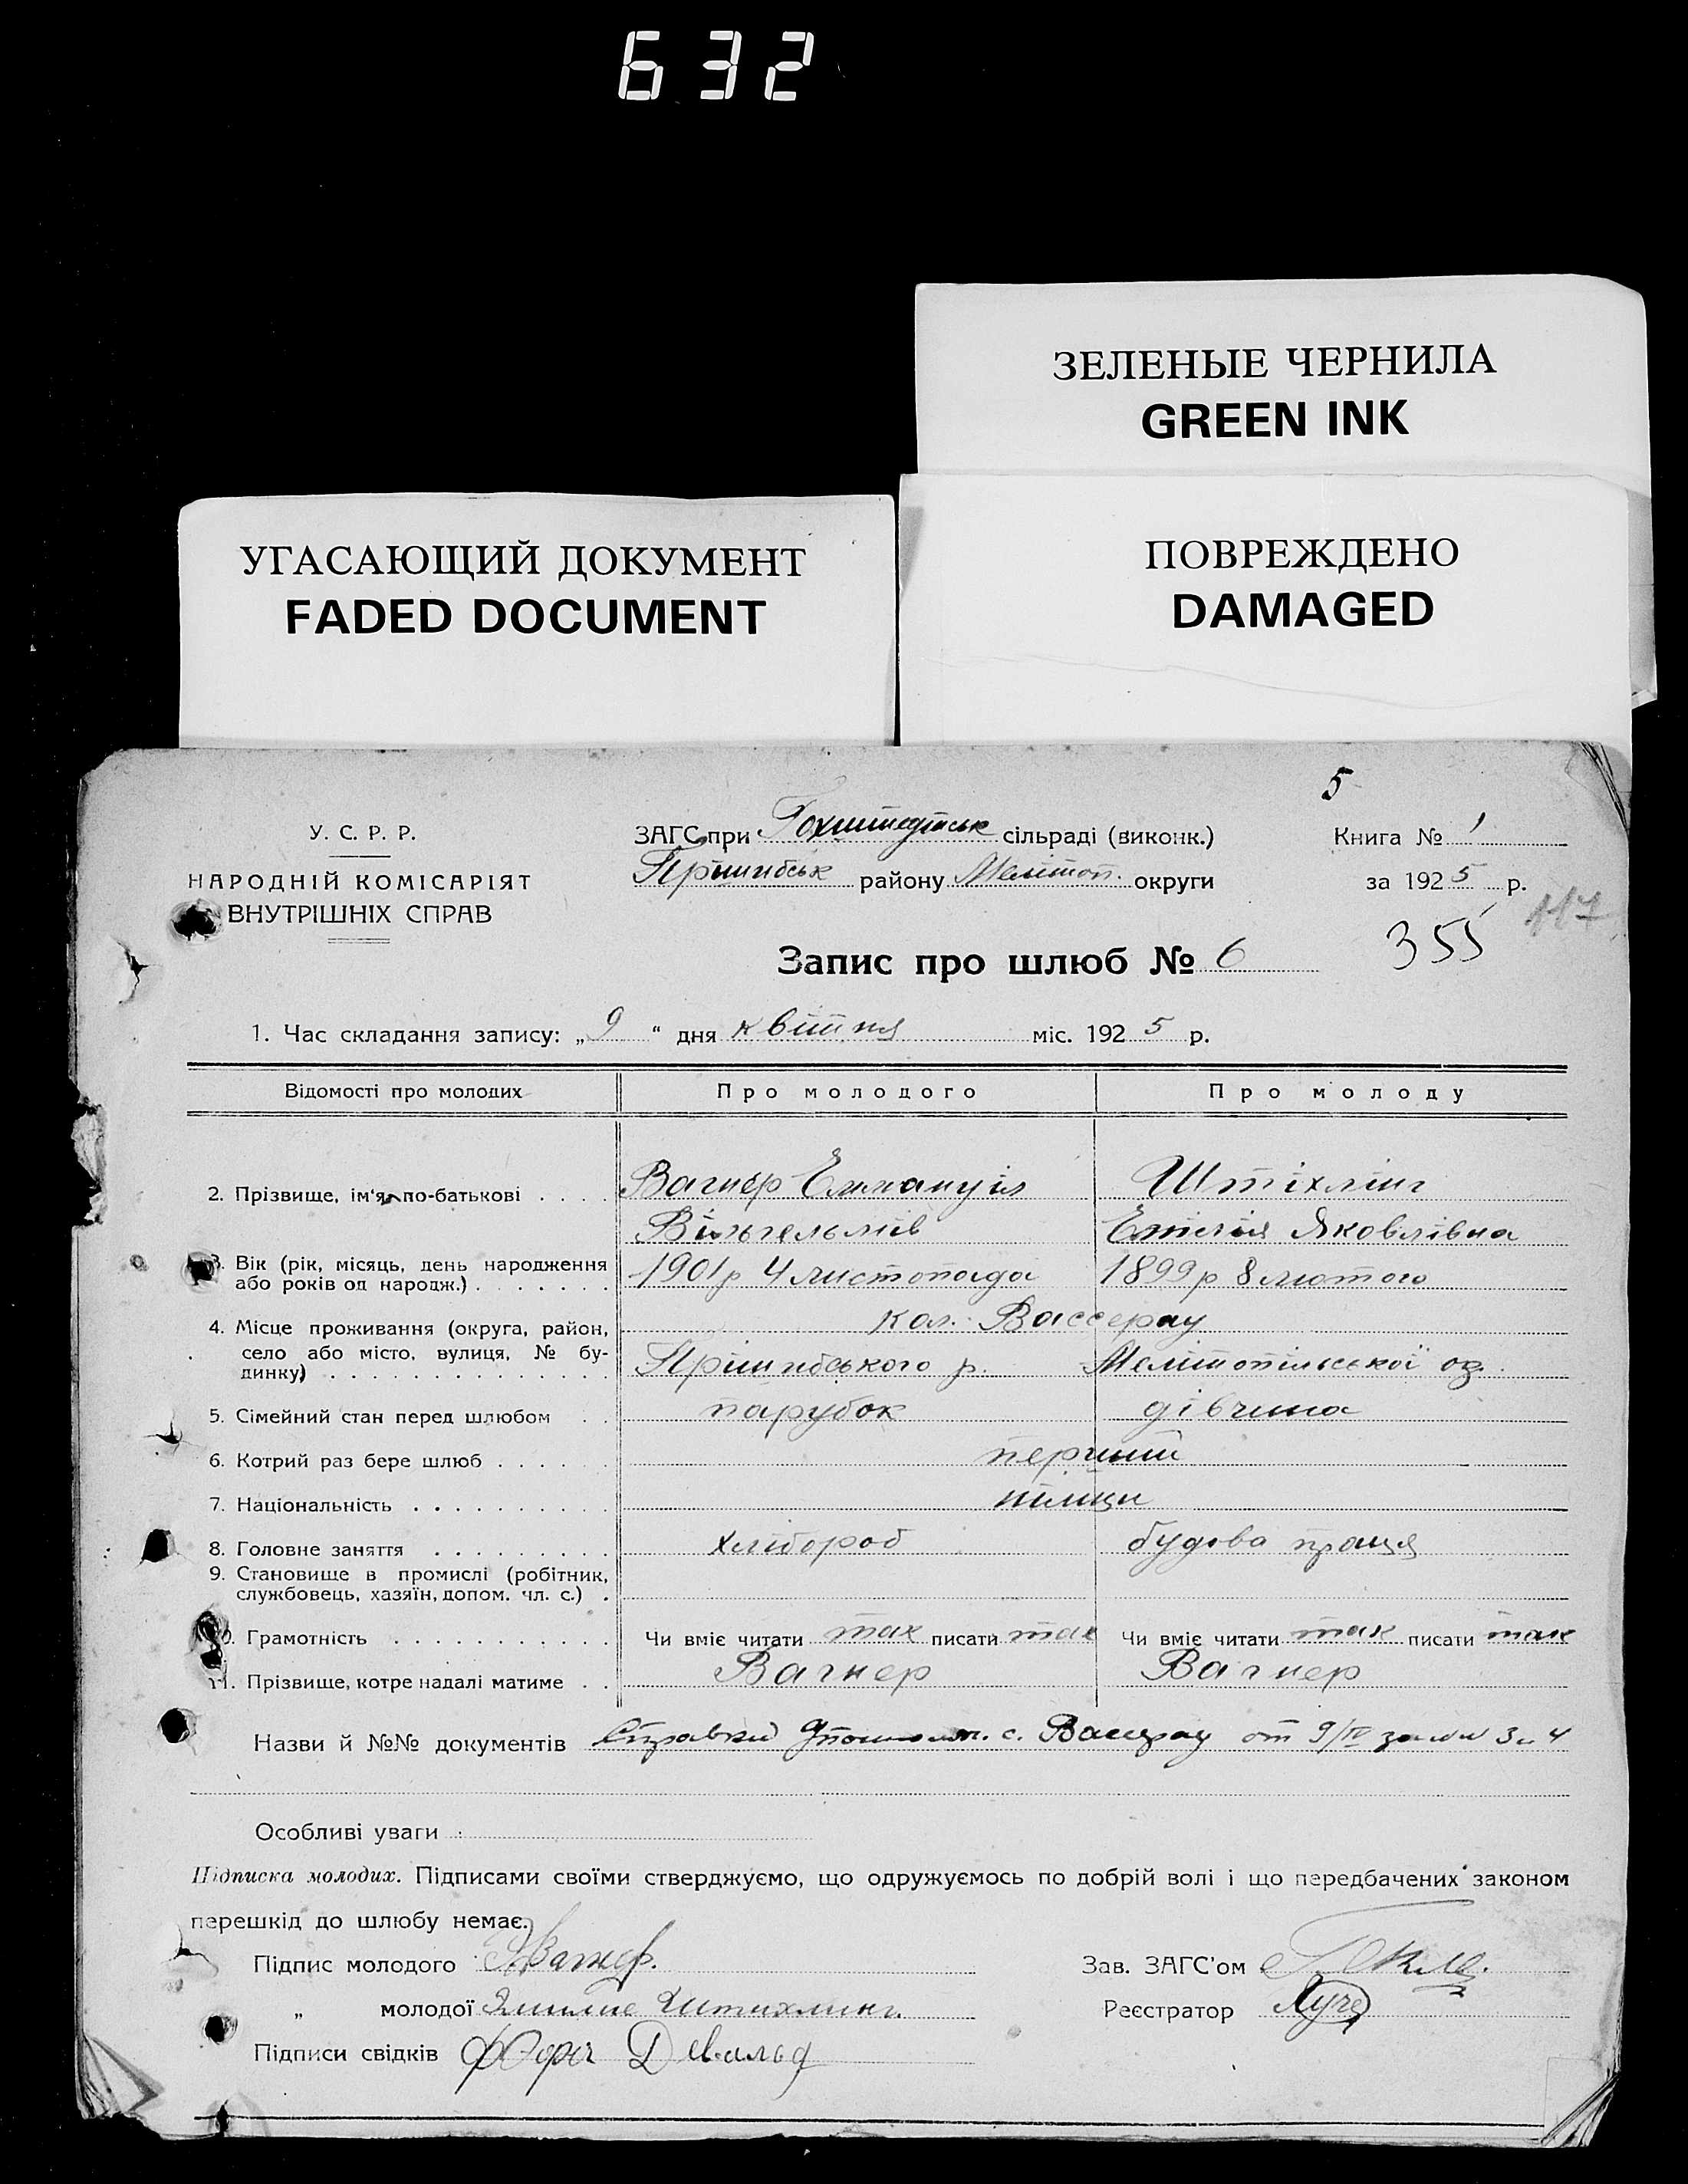 632
ЗЕЛЕНЫЕ ЧЕРНИЛА
GREEN INK
УГАСАЮЩИЙ ДОКУМЕНТ
FADED DOCUMENT
ПОВРЕЖДЕНО
DAMAGED
5
У. С. Р. Р.
ЗАГС при Гохштедтськ сільраді (виконк.)
Книга № 1
НАРОДНІЙ КОМІСАРІЯТ
Прішибськ району Мелітоп. округи
за 1925 р.
117
ВНУТРІШНІХ СПРАВ
Запис про шлюб № 6
355
1. Час складання запису: „9“ дня квітня міс. 1925 р.
Відомості про молодих Про молодого Про молоду
2. Прізвище, ім‘я, по-батькові . . . . Вагнер Еммануіл Штіхлінг
Вільгельмів Емілія Яковлівна
3. Вік (рік, місяць, день народження 1901 р 4 листопада 1899 р 8 лютого
або років од народж.) . . . . . . .
4. Місце проживання (округа, район, кол. Вассерау
село або місто, вулиця, № бу-
динку) . . . . . . . . . . . . . . Прішибського р. Мелітопільської ок.
5. Сімейний стан перед шлюбом . . парубок дівчина
6. Котрий раз бере шлюб . . . . . . перший
7. Національність . . . . . . . . . . німци
8. Головне заняття . . . . . . . . . хлібороб будова праця
9. Становище в промислі (робітник,
службовець, хазяїн, допом. чл. с.) .
10. Грамотність . . . . . . . . . . . Чи вміє читати так писати так Чи вміє читати так писати так
11. Прізвище, котре надалі матиме . . Вагнер Вагнер
Назви й №№ документів Справки с. Вассерау от 9/IV за №№ 3 и 4
Особливі уваги
Підписка молодих. Підписами своїми стверджуємо, що одружуємось по добрій волі і що передбачених законом
перешкід до шлюбу немає.
Підпис молодого Э Вагнер.
Зав. ЗАГС'ом
„ молодої Эмилие Штихлинг.
Реєстратор
Підписи свідків Девальд